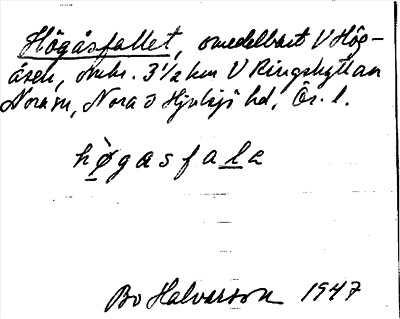 Högåsfallet, omedelbart V Hög-
åsen, omkr. 3 1/2 km V Ringshyttan
Nora sn, Nora o Hjulsjö hd, Ör. l.
hø̀gåsfala
Bo Halvarson 1947